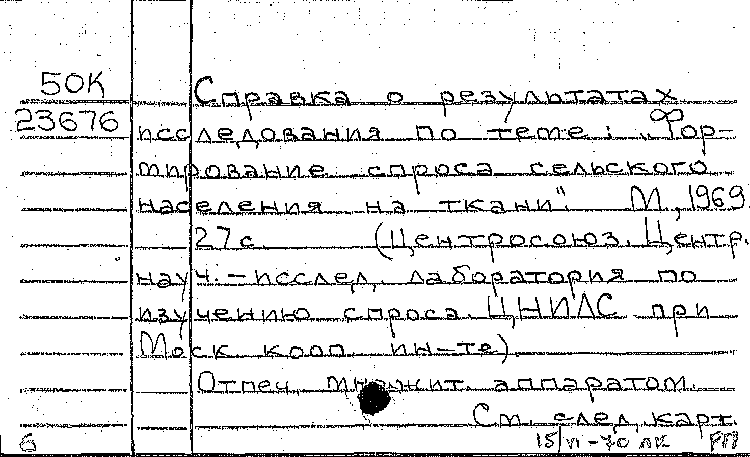 50К
Справка о результатах
23676
исследования по теме: „Фор-
мирование спроса сельского
населения на ткани". М, 1969.
27с (Центросоюз. Центр.
науч.-исслед. лаборатория по
изучению спроса ЦНИЛС при
Моск. кооп. ин-те)
Отпеч. множит. аппаратом.
См. след. карт.
6 15/VI-70 ЛК РП